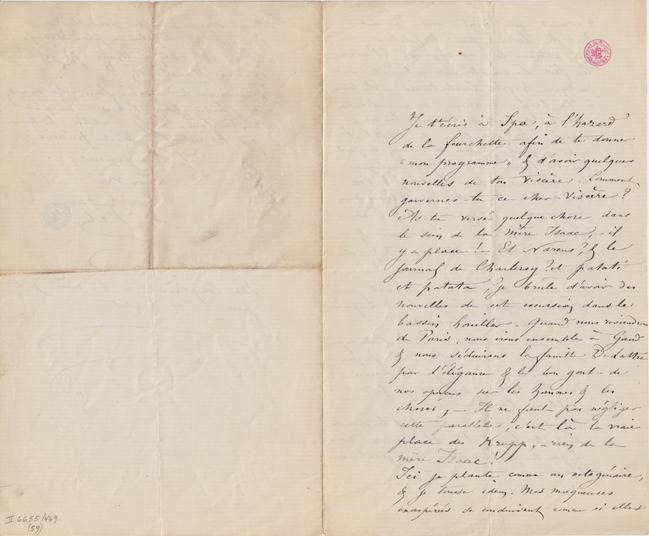 Je t'écris à Spa, à l'hazard
de la fourchette afin de te donner
« mon programme » & d'avoir quelques
nouvelles de ton Viscère. Comment
gouvernes-tu ce cher Viscère ?
As-tu versé quelque chose dans
le sein de la Mère Isaac, - il
y a place ! - Et & le
journal de Charleroy ? et patati
et patata, je brule d'avoir des
nouvelles de cet excursion dans le
bassin houiller. Quand nous reviendrons
de Paris, nous irons ensemble à Gand
& nous séduirons la famille
par l'élégance & le bon gout - de
nos opinions sur les hommes & les
choses, - Il ne faut pas négliger
cette parallèle, c'est là la vraie
place des Krupp, - rien de la
mère Isaac !
Ici je plante comme un octogénaire,
& je tousse idem. Mes muqueuses
exaspérées se conduisent comme si elles
II 6655/469
(59)